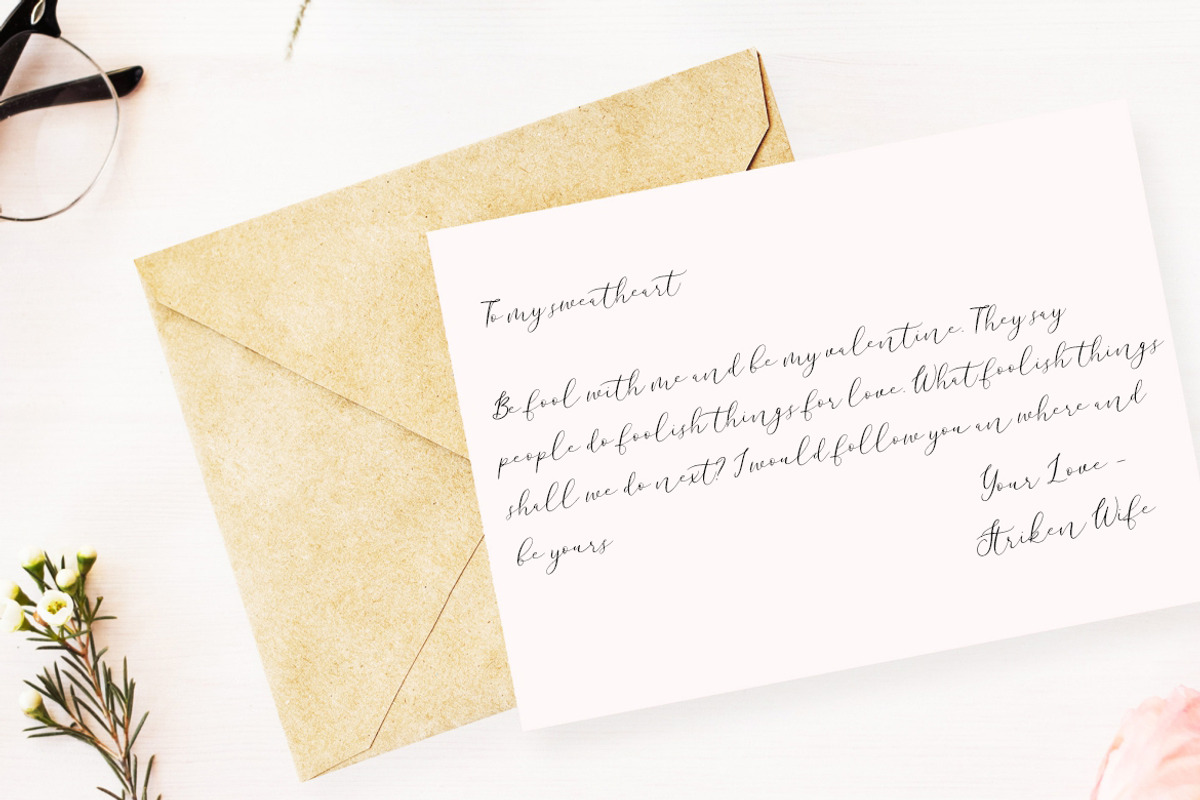 To my sweatheart
Be fool with me and be my valentine. They say
people do foolish things for love. What foolish things
shall we do next? I would follow you an where and
be yours
Your Love -
Striken Wife